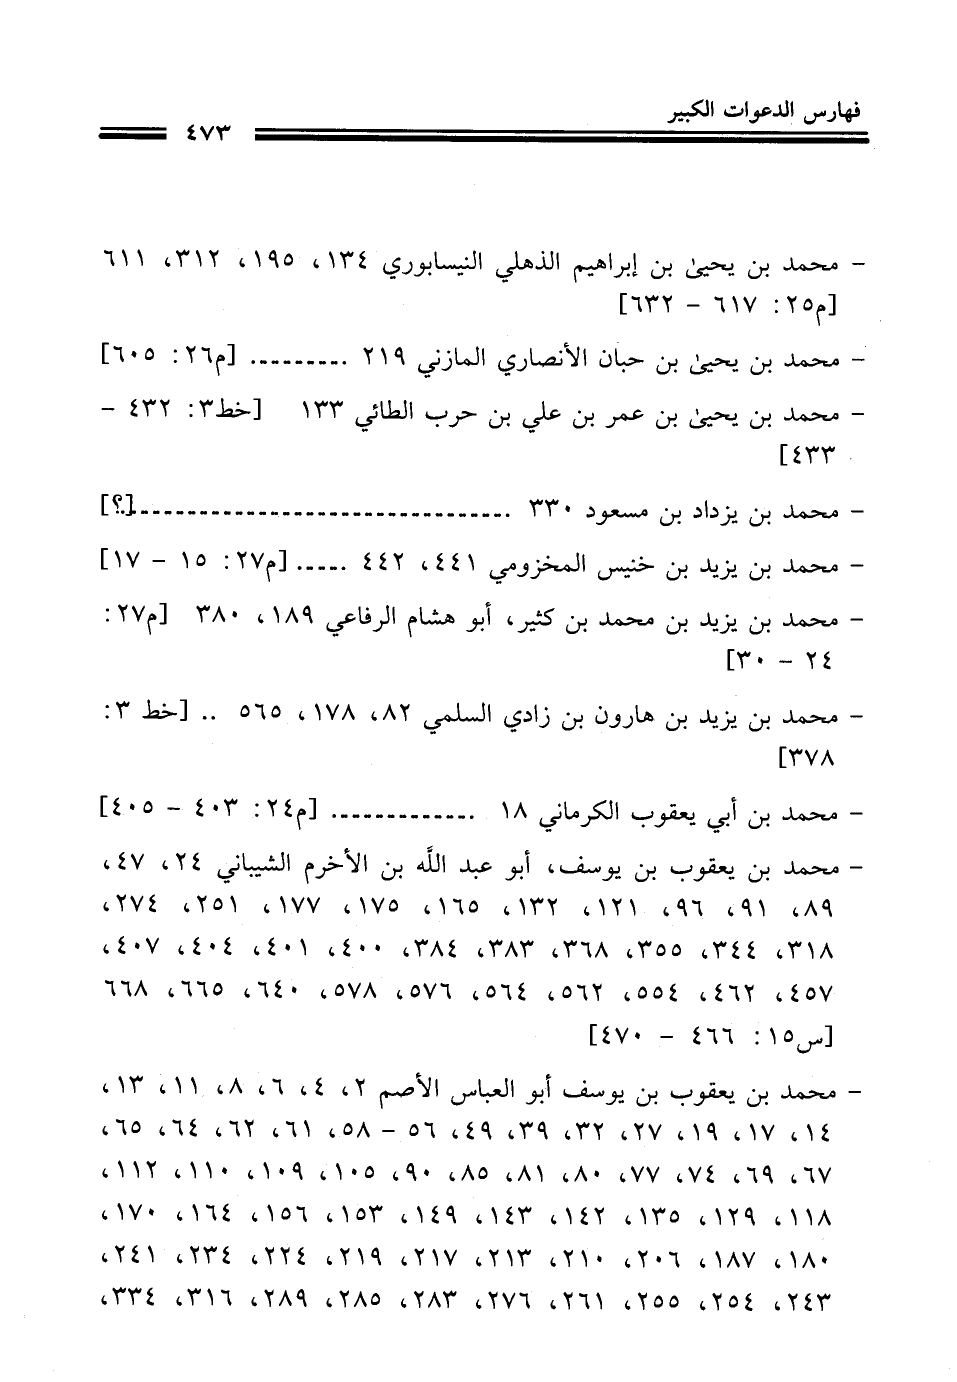 فهارس الدعوات الكبير
٤٧٣
– محمد بن يحيىٰ بن إبراهيم الذهلي النيسابوري ١٣٤، ١٩٥، ٣١٢، ٦١١
[م٢٥: ٦١٧ – ٦٣٢]
– محمد بن يحيىٰ بن حبان الأنصاري المازني ٢١٩ ......... [م٢٦: ٦٠٥]
– محمد بن يحيىٰ بن عمر بن علي بن حرب الطائي ١٣٣ [خط٣: ٤٣٢ –
٤٣٣]
– محمد بن يزداد بن مسعود ٣٣٠ ................................[؟]
– محمد بن يزيد بن خنيس المخزومي ٤٤١، ٤٤٢ .....[م٢٧: ١٥ – ١٧]
– محمد بن يزيد بن محمد بن كثير، أبو هشام الرفاعي ١٨٩، ٣٨٠ [م٢٧:
٢٤ – ٣٠]
– محمد بن يزيد بن هارون بن زادي السلمي ٨٢، ١٧٨، ٥٦٥ .. [خط ٣:
٣٧٨]
– محمد بن أبي يعقوب الكرماني ١٨ ............. [م٢٤: ٤٠٣ – ٤٠٥]
– محمد بن يعقوب بن يوسف، أبو عبد اللَّه بن الأخرم الشيباني ٢٤، ٤٧،
٨٩، ٩١، ٩٦، ١٢١، ١٣٢، ١٦٥، ١٧٥، ١٧٧، ٢٥١، ٢٧٤،
٣١٨، ٣٤٤، ٣٥٥، ٣٦٨، ٣٨٣، ٣٨٤، ٤٠٠، ٤٠١، ٤٠٤، ٤٠٧،
٤٥٧، ٤٦٢، ٥٥٤، ٥٦٢، ٥٦٤، ٥٧٦، ٥٧٨، ٦٤٠، ٦٦٥، ٦٦٨
[س١٥: ٤٦٦ – ٤٧٠]
– محمد بن يعقوب بن يوسف أبو العباس الأصم ٢، ٤، ٦، ٨، ١١، ١٣،
١٤، ١٧، ١٩، ٢٧، ٣٢، ٣٩، ٤٩، ٥٦ – ٥٨، ٦١، ٦٢، ٦٤، ٦٥،
٦٧، ٦٩، ٧٤، ٧٧، ٨٠، ٨١، ٨٥، ٩٠، ١٠٥، ١٠٩، ١١٠، ١١٢،
١١٨، ١٢٩، ١٣٥، ١٤٢، ١٤٣، ١٤٩، ١٥٣، ١٥٦، ١٦٤، ١٧٠،
١٨٠، ١٨٧، ٢٠٦، ٢١٠، ٢١٣، ٢١٧، ٢١٩، ٢٢٤، ٢٣٤، ٢٤١،
٢٤٣، ٢٥٤، ٢٥٥، ٢٦١، ٢٧٦، ٢٨٣، ٢٨٥، ٢٨٩، ٣١٦، ٣٣٤،